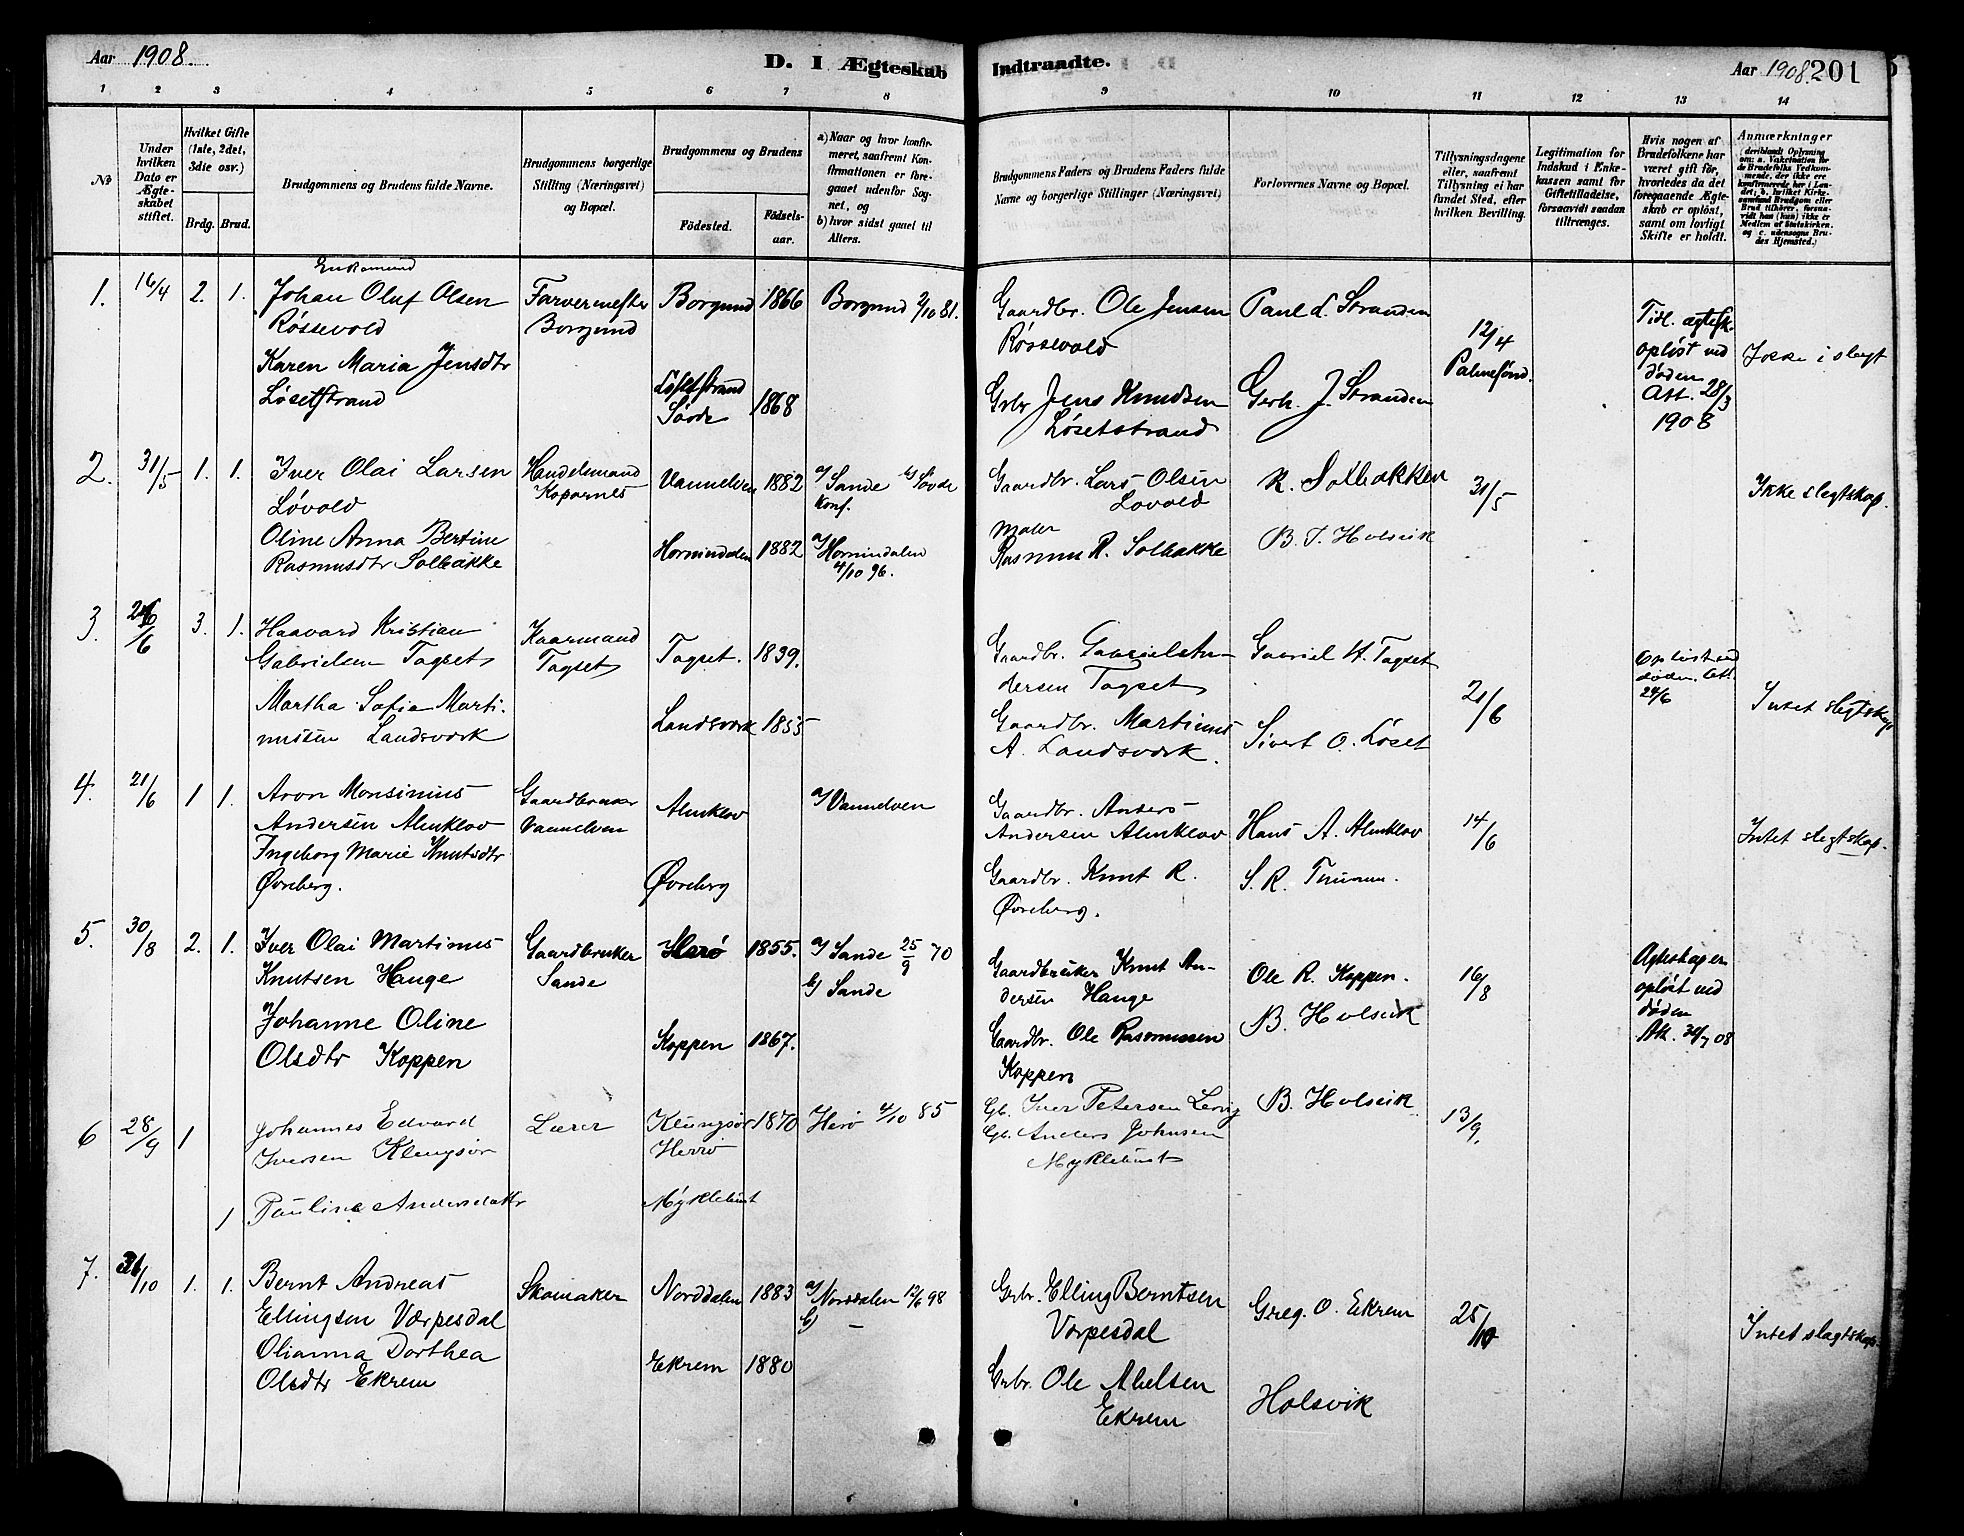 Aar 1908.
D. I Ægteskab
Indtraadte.
Aar 1908. 201
1 2 3 4 5 6 7 8 9 10 11 12 13 14
No
Under
hvilken
Dato er
Ægte-
skabet
stiftet.
Hvilket Gifte
(1ste, 2det,
3die osv.)
Brdg. Brud.
Brudgommens og Brudens fulde Navne.
Brudgommens borgerlige
Stilling (Næringsvei)
og Bopæl.
Brudgommens og Brudens
Fødested.
Fødsels-
aar.
a) Naar og hvor konfir-
meret, saafremt Kon-
firmationen er fore-
gaaet udenfor Sog-
net, og
b) hvor sidst gaaet til
Alters.
Brudgommens Faders og Brudens Faders fulde
Navne og borgerlige Stillinger (Næringsvei)
Forlovernes Navne og Bopæl.
Tillysningsdagene
eller, saafremt
Tillysning ei har
fundet Sted, efter
hvilken Bevilling.
Legitimation for
Indskud i Enke-
kassen samt for
Giftetilladelse,
forsaavidt saadan
tiltrænges.
Hvis nogen af
Brudefolkene har
været gift før,
hvorledes da det
foregaaende Ægte-
skab er opløst,
samt om lovligt
Skifte er holdt.
Anmærkninger
(deriblandt Oplysning
om: a. Vakcination for
de Brudefolks Vedkom-
mende, der ikke er
konfirmerede her i Lan-
det; b. hvilket Kirke-
samfund Brudgom eller
Brud tilhører, forsaa-
vidt han (hun) ikke er
Medlem af Statskirken,
og c. udensogns Bru-
des Hjemsted.)
1. 16/4 2. 1.
Enkemand
Johan Oluf Olsen
Røssevold
Karen Maria Jensdtr
Løsetstrand
Farvermester
Borgund
Borgund 1866
Løsetstrand
Søvde 1868
Borgund 2/10 81.
Gaardbr. Ole Jensen
Røssevold
Grbr Jens Knudsen
Løsetstrand
Paul L. Stranden
Gerh. J. Stranden
12/4
Palmesønd.
Tidl. ægtesk.
opløst ved
døden
Att. 28/3
1908
Ikke i slegt
2. 31/5 1. 1.
Iver Olai Larsen
Løvold
Oline Anna Bertine
Rasmusdtr Solbakke
Handelsmand
Koparnes
Vannelven 1882
Hornindalen 1882
a/ Sande b/ Søvde
Konf.
a/ Hornindalen
4/10 96.
Gaardbr. Lars Olsen
Løvold
Maler
Rasmus R. Solbakke
R. Solbakken
B. T. Holsvik
31/5
Ikke slegtskap.
3. 26/6 3. 1.
Haavard Kristian
Gabrielsen Tagset
Martha Sofie Marti-
nusen Landsværk
Kaarmand
Tagset
Tagset. 1839.
Landsværk 1855
Gaardbr. Gabriel An-
dersen Tagset
Gaardbr. Martinus
A. Landsværk.
Gabriel H. Tagset
Sivert O. Løset
21/6
Opløst ved
døden. Att.
24/6
Intet slegtskap
4. 21/6 1 1.
Aron Monsinius
Andersen Almklov
Ingeborg Marie Knutsdtr
Øvreberg.
Gaardbruker
Vannelven
Almklov
Øvreberg
a/ Vannelven
Gaardbr. Anders
Andersen Almklov
Gaardbr. Knut R.
Øvreberg.
Hans A. Almklov
14/6
Intet slegtskap.
5. 30/8 2. 1.
Iver Olai Martinus
Knutsen Hauge
Johanne Oline
Olsdtr Koppen
Gaardbruker
Sande
Herø 1855.
Koppen 1867.
a/ Sande 25/9 70
b/ Sande
Gaardbruker Knut An-
dersen Hauge
Gaardbr. Ole Rasmussen
Koppen
Ole R. Koppen.
B. Holsvik
16/8
Ægteskapen
opløst ved
døden
Att. 30/7 08
6 28/9 1
Johannes Edvard
Iversen Klungsør
1 Pauline Andersdattr
Lærer
Klungsør 1870
Herø
Myklebust
Herø 4/10 85
Gb. Iver Petersen Levig
Gb. Anders Johnsen
Myklebust
B. Holsvik
13/9.
7. 31/10 1. 1.
Bernt Andreas
Ellingsen Værpesdal
Olianna Dorthea
Olsdtr Ekrem
Skomaker
Norddalen 1883
Ekrem 1880
a/ Norddalen 12/6 98
b/ –
Grbr. Elling Berntsen
Værpesdal
Grbr. Ole Abelsen
Ekrem
Greg. O. Ekrem
Holsvik
25/10
Intet slagtskap.